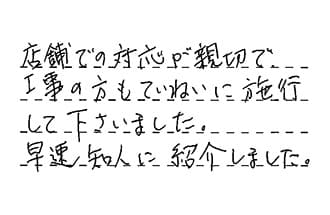 店舗での対応が親切で、
工事の方もていねいに施行
して下さいました。
早速知人に紹介しました。